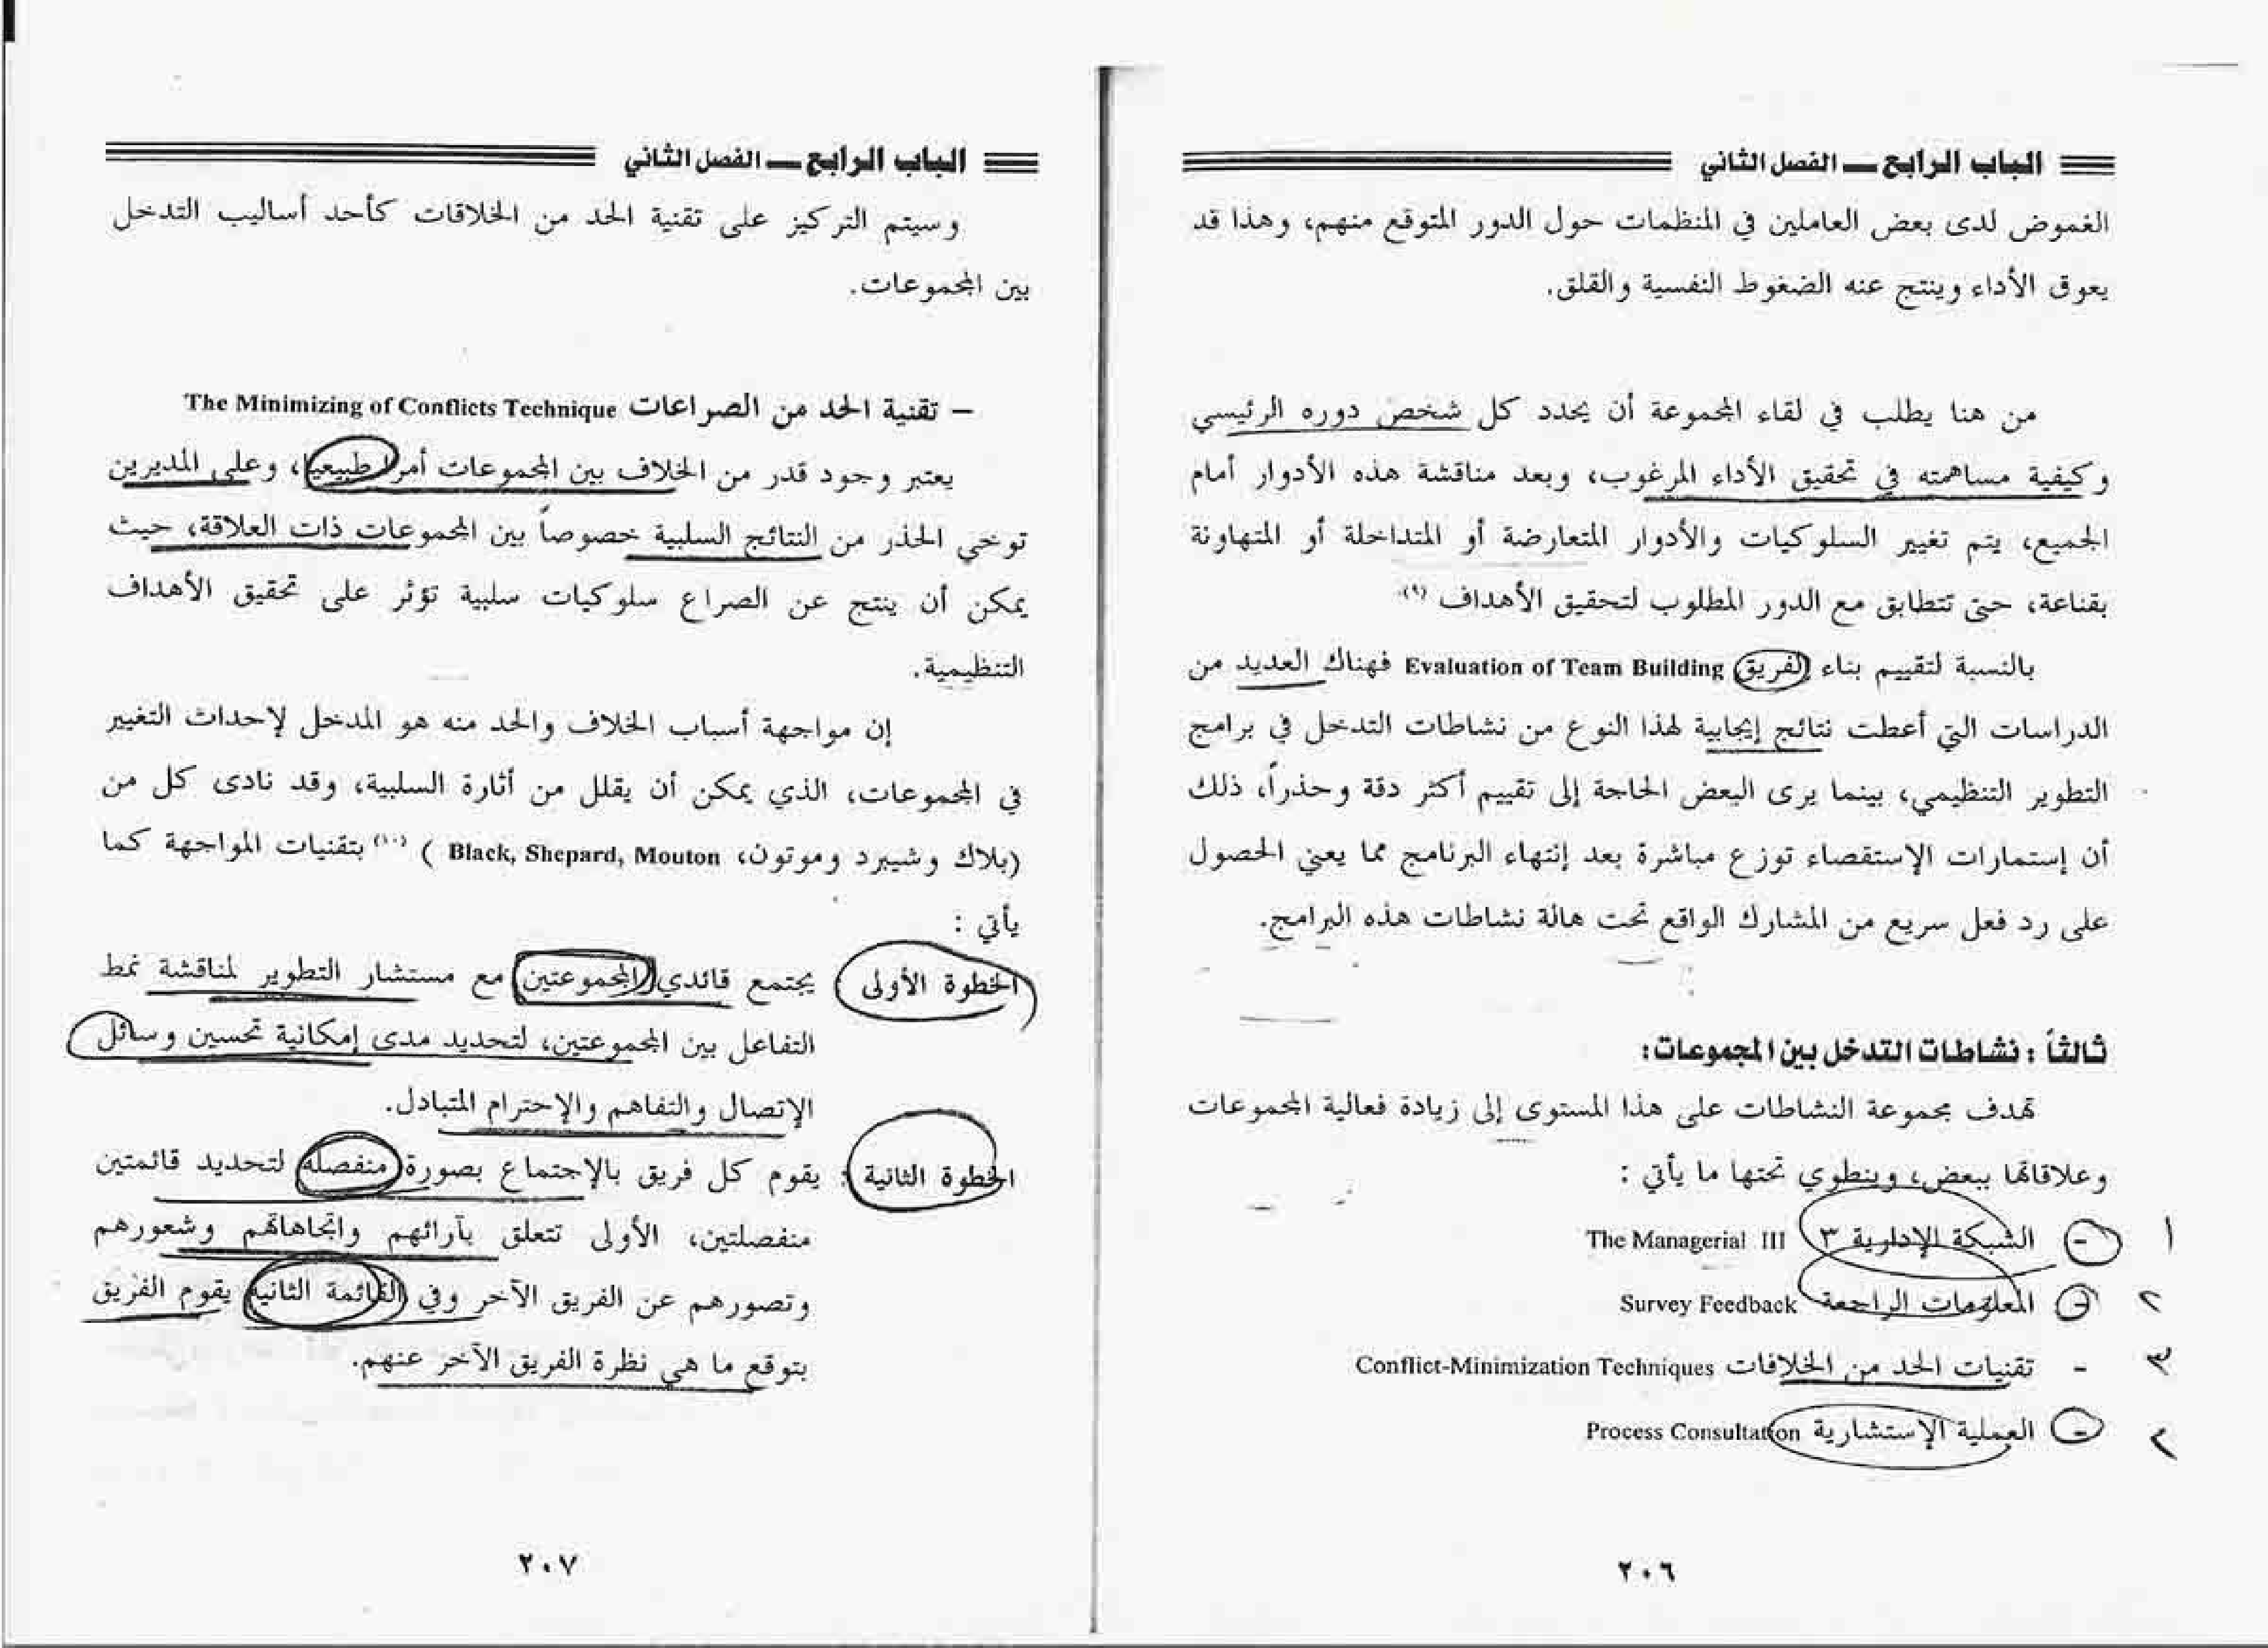 الباب الرابع ــ الفصل الثاني
الغموض لدى بعض العاملين في المنظمات حول الدور المتوقع منهم، وهذا قد
يعوق الأداء وينتج عنه الضغوط النفسية والقلق.
من هنا يطلب في لقاء المجموعة أن يحدد كل شخص دوره الرئيسي
وكيفية مساهمته في تحقيق الأداء المرغوب، وبعد مناقشة هذه الأدوار أمام
الجميع، يتم تغيير السلوكيات والأدوار المتعارضة أو المتداخلة أو المتهاونة
بقناعة، حتى تتطابق مع الدور المطلوب لتحقيق الأهداف (٩).
بالنسبة لتقييم بناء الفريق Evaluation of Team Building فهناك العديد من
الدراسات التي أعطت نتائج إيجابية لهذا النوع من نشاطات التدخل في برامج
التطوير التنظيمي، بينما يرى البعض الحاجة إلى تقييم أكثر دقة وحذراً، ذلك
أن إستمارات الإستقصاء توزع مباشرة بعد إنتهاء البرنامج مما يعني الحصول
على رد فعل سريع من المشارك الواقع تحت هالة نشاطات هذه البرامج.
ثالثاً : نشاطات التدخل بين المجموعات:
تهدف مجموعة النشاطات على هذا المستوى إلى زيادة فعالية المجموعات
وعلاقاتها ببعض، وينطوي تحتها ما يأتي :
١ - الشبكة الإدارية ٣ The Managerial III
٢ - المعلومات الراجعة Survey Feedback
٣ - تقنيات الحد من الخلافات Conflict-Minimization Techniques
- العملية الإستشارية Process Consultation
٢٠٦
الباب الرابع ــ الفصل الثاني
وسيتم التركيز على تقنية الحد من الخلاقات كأحد أساليب التدخل
بين المجموعات.
– تقنية الحد من الصراعات The Minimizing of Conflicts Technique
يعتبر وجود قدر من الخلاف بين المجموعات أمرا طبيعيا، وعلى المديرين
توخي الحذر من النتائج السلبية خصوصاً بين المجموعات ذات العلاقة، حيث
يمكن أن ينتج عن الصراع سلوكيات سلبية تؤثر على تحقيق الأهداف
التنظيمية.
إن مواجهة أسباب الخلاف والحد منه هو المدخل لإحداث التغيير
في المجموعات، الذي يمكن أن يقلل من أثارة السلبية، وقد نادى كل من
(بلاك وشيبرد وموتون، Black, Shepard, Mouton ) (١٠) بتقنيات المواجهة كما
يأتي :
الخطوة الأولى : يجتمع قائدي المجموعتين مع مستشار التطوير لمناقشة نمط
التفاعل بين المجموعتين، لتحديد مدى إمكانية تحسين وسائل
الإتصال والتفاهم والإحترام المتبادل.
الخطوة الثانية : يقوم كل فريق بالإجتماع بصورة منفصله لتحديد قائمتين
منفصلتين، الأولى تتعلق بآرائهم واتجاهاتهم وشعورهم
وتصورهم عن الفريق الآخر وفي القائمة الثانية يقوم الفريق
بتوقع ما هي نظرة الفريق الآخر عنهم.
٢٠٧